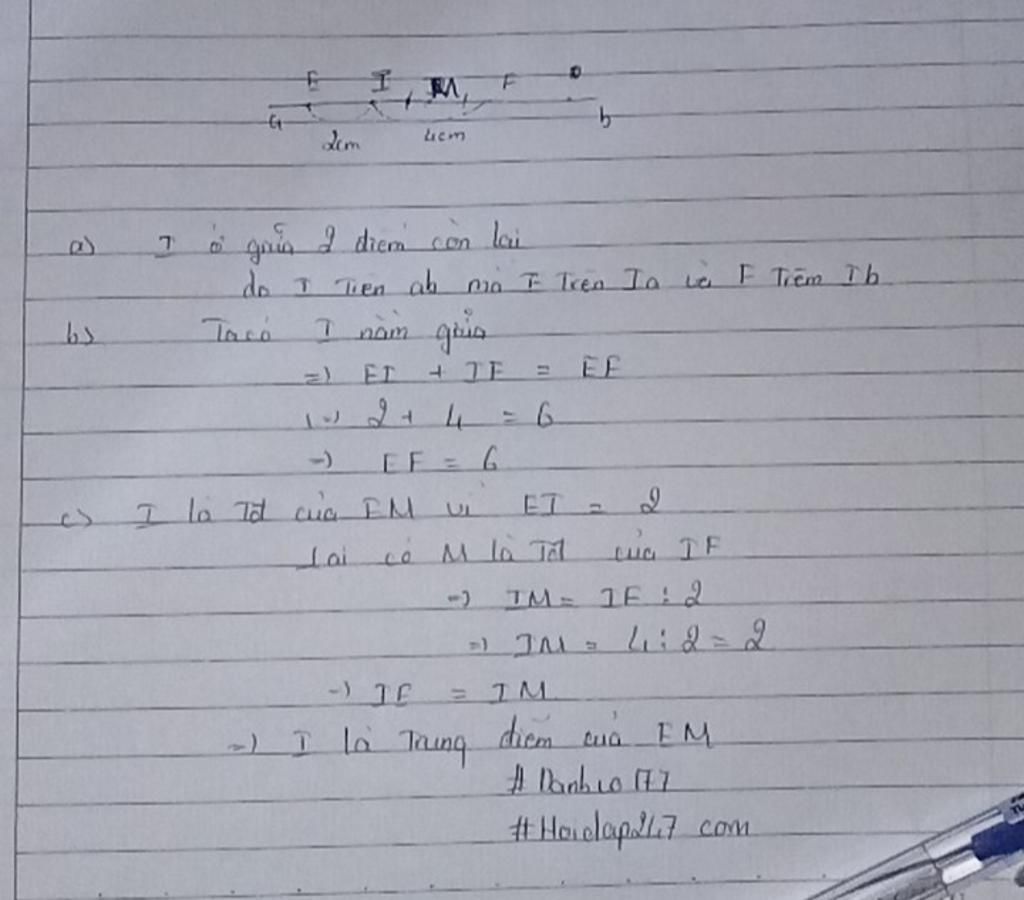 E I M F
a b
2cm 4cm
a) I ở giữa 2 điểm còn lại
do I trên ab mà E trên Ia và F trên Ib
b) Ta có I nằm giữa
=> EI + IF = EF
2 + 4 = 6
=> EF = 6
c) I là Tđ của EM vì EI = 2
Lại có M là Tđ của IF
=> IM = IF : 2
=> IM = 4 : 2 = 2
=> IE = IM
=> I là Trung điểm của EM
#Hoidap247 com